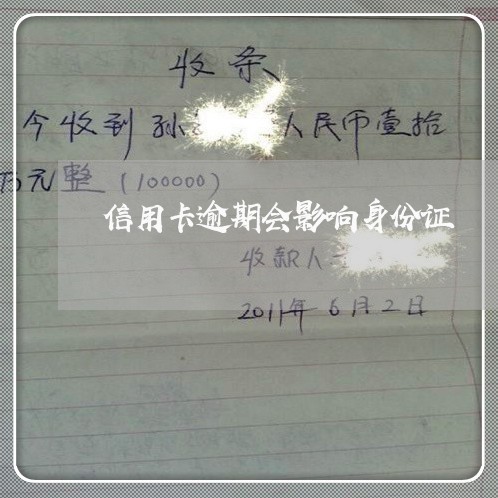 收条
今收到孙 人民币壹拾
万元整(100000)
信用卡逾期会影响身份证
收款人:
2011年6月2日